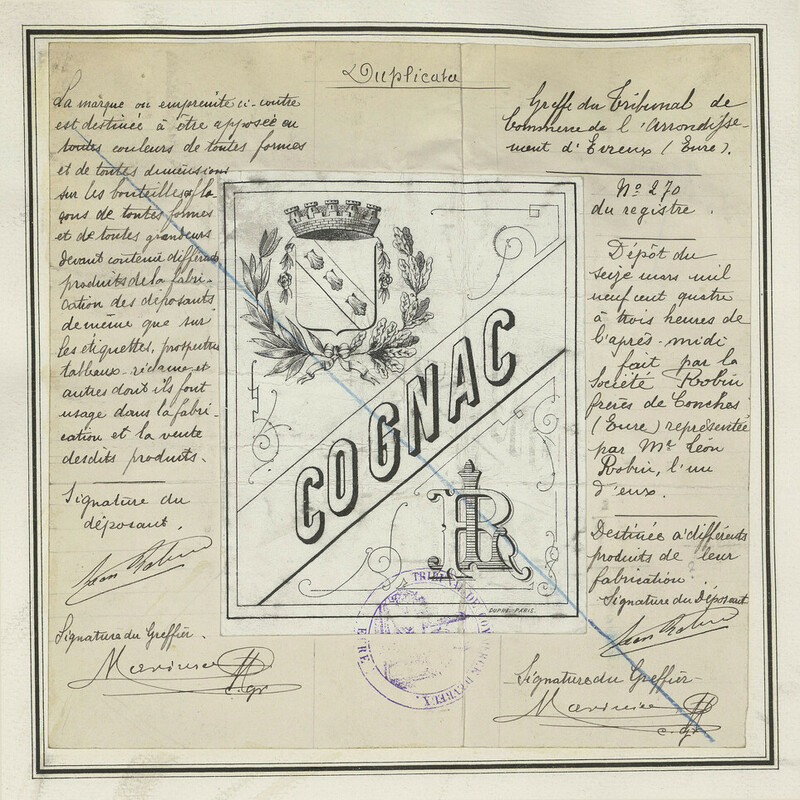 Duplicata
La marque ou empreinte ci-contre
est destinée à être apposée en
toutes couleurs de toutes formes
et de toutes dimensions
sur les bouteilles, fla-
cons de toutes formes
et de toutes grandeurs
devant contenir différents
produits de la fabri-
cation des déposants
de même que sur
les étiquettes, prospectus
tableaux-réclame et
autres dont ils font
usage dans la fabri-
cation et la vente
desdits produits.
Signature du
déposant.
Léon Robin
Signature du Greffier.
c. gr
COGNAC
LRB
DUPRE. PARIS.
TRIBUNAL DE COMMERCE D'EVREUX.
EURE
Greffe du Tribunal de
Commerce de l'Arrondisse-
ment d'Evreux (Eure).
No 270
du registre.
Dépôt du
seize mars mil
neuf cent quatre
à trois heures de
l'après-midi
fait par la
Société Robin
frères de Conches
(Eure) représentée
par Mr Léon
Robin, l'un
d'eux.
Destinée à différents
produits de leur
fabrication.
Signature du Déposant
Léon Robin
Signature du Greffier
c. gr